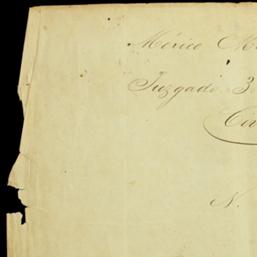 México
Juzgado 3
N.